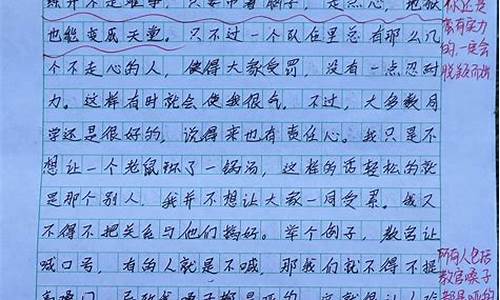 练并不是难事，只要带着脑子，走点心，地狱
也能变成天堂。只不过一个队伍里总有那么几
个不走心的人，使得大家受罚，没有一点忍耐
力。这样有时就会使我很气。不过，大多数同
学还是很好的，说得来也有责任心。我只是不
想让一个老鼠坏了一锅汤，这样的话轻松的就
是那个别人，我并不想让大家一同受累。我又
不得不把关系与他们搞好。举个例子，教官让
喊口号，有的人就是不喊，那我们就得不提
你还是
蛮有实力
的，一定会
脱颖而出
所有人包括
教官嗓子